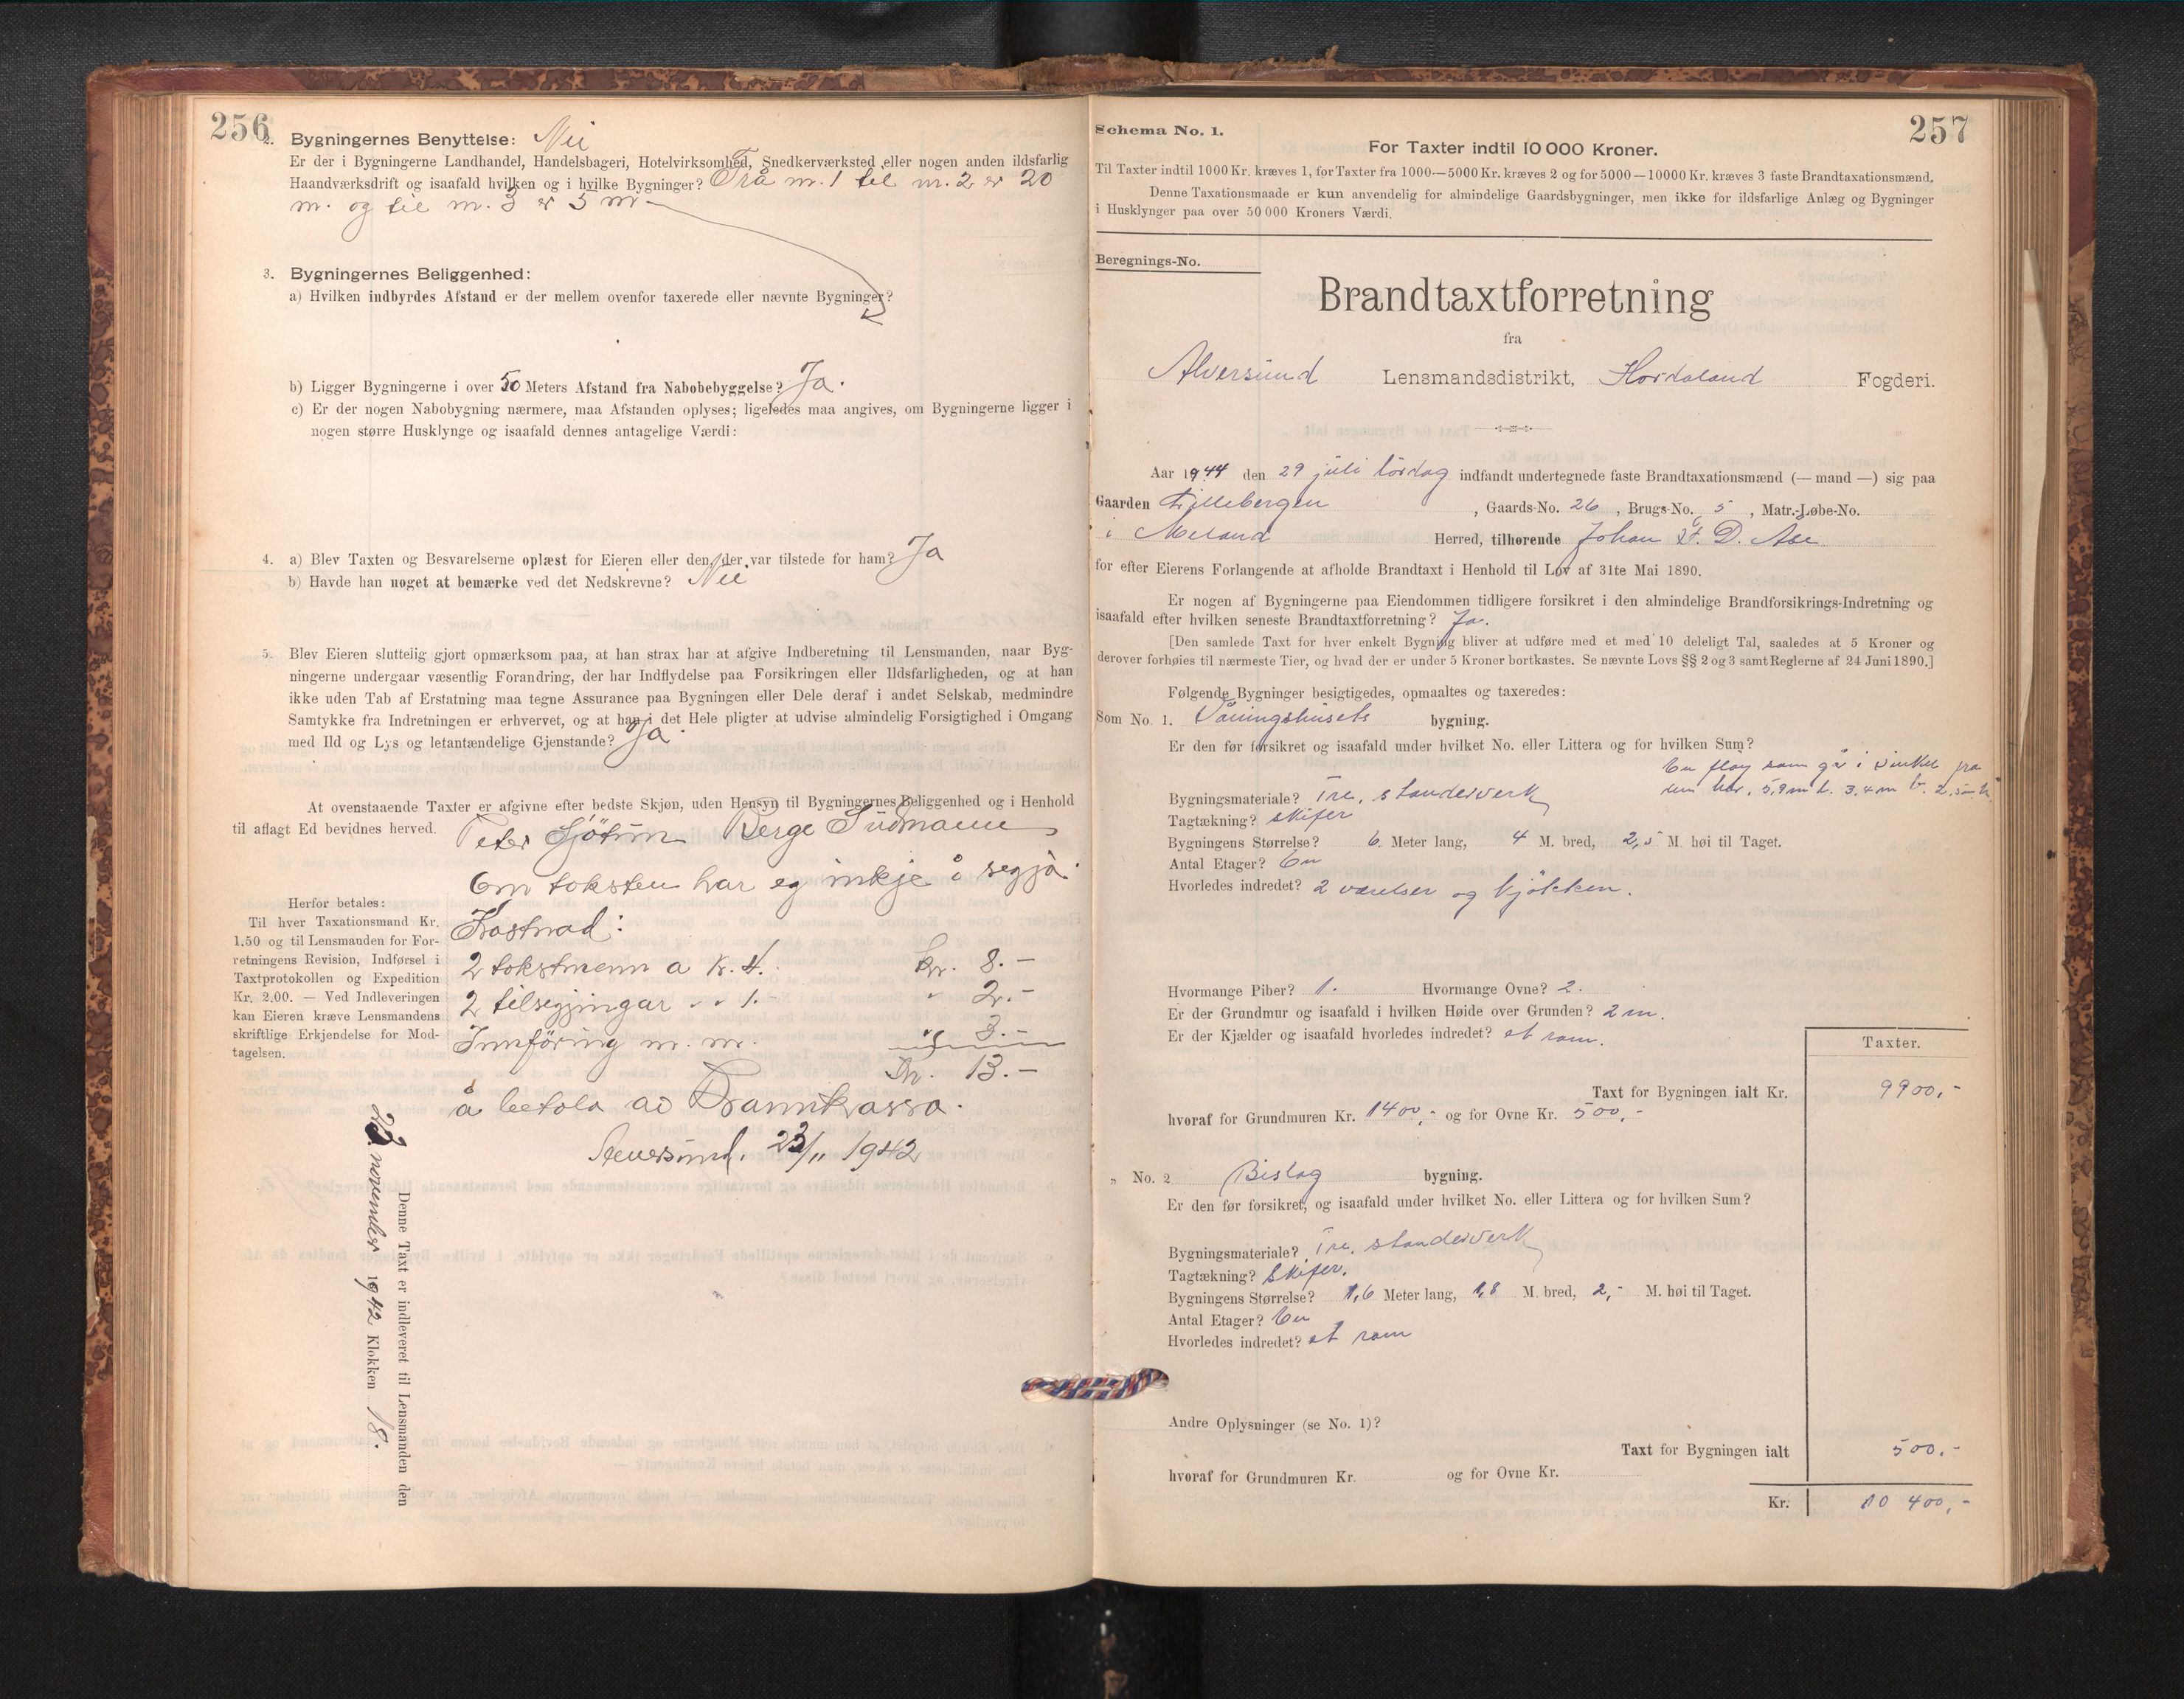 256
2. Bygningernes Benyttelse: Nei
Er der i Bygningerne Landhandel, Handelsbageri, Hotelvirksomhed, Snedkerværksted eller nogen anden ildsfarlig
Haandværksdrift og isaafald hvilken og i hvilke Bygninger? Frå nr. 1 til nr. 2 er 20
m. og til nr. 3 er 5 m
3. Bygningernes Beliggenhed:
a) Hvilken indbyrdes Afstand er der mellem ovenfor taxerede eller nævnte Bygninger?
b) Ligger Bygningerne i over 50 Meters Afstand fra Nabobebyggelse? Ja.
c) Er der nogen Nabobygning nærmere, maa Afstanden oplyses; ligeledes maa angives, om Bygningerne ligger i
nogen større Husklynge og isaafald dennes antagelige Værdi:
4. a) Blev Taxten og Besvarelserne oplæst for Eieren eller den, der var tilstede for ham? Ja
b) Havde han noget at bemærke ved det Nedskrevne? Nei
5. Blev Eieren sluttelig gjort opmærksom paa, at han strax har at afgive Indberetning til Lensmanden, naar Byg-
ningerne undergaar væsentlig Forandring, der har Indflydelse paa Forsikringen eller Ildsfarligheden, og at han
ikke uden Tab af Erstatning maa tegne Assurance paa Bygningen eller Dele deraf i andet Selskab, medmindre
Samtykke fra Indretningen er erhvervet, og at han i det Hele pligter at udvise almindelig Forsigtighed i Omgang
med Ild og Lys og letantændelige Gjenstande? Ja.
At ovenstaaende Taxter er afgivne efter bedste Skjøn, uden Hensyn til Bygningernes Beliggenhed og i Henhold
til aflagt Ed bevidnes herved. Peter Berge
Om toksten har eg inkje å segja.
Herfor betales:
Til hver Taxationsmand Kr.
1.50 og til Lensmanden for For-
retningens Revision, Indførsel i
Taxtprotokollen og Expedition
Kr. 2.00. — Ved Indleveringen
kan Eieren kræve Lensmandens
skriftlige Erkjendelse for Mod-
tagelsen.
Kostnad:
2 tokstmenn a kr. 4. kr. 8.-
2 tilsegjingar " " 1.- " 2.-
Innföring m. m. " 3.-
Kr. 13.-
å betala av Brannkassa.
Alversund, 23/11 1942
Denne Taxt er indleveret til Lensmanden den
23 november 1942 Klokken 18.
257
Schema No. 1.
For Taxter indtil 10 000 Kroner.
Til Taxter indtil 1000 Kr. kræves 1, for Taxter fra 1000—5000 Kr. kræves 2 og for 5000—10000 Kr. kræves 3 faste Brandtaxationsmænd.
Denne Taxationsmaade er kun anvendelig for almindelige Gaardsbygninger, men ikke for ildsfarlige Anlæg og Bygninger
i Husklynger paa over 50 000 Kroners Værdi.
Beregnings-No.
Brandtaxtforretning
fra
Alversund Lensmandsdistrikt, Hordaland Fogderi.
Aar 1944 den 29 juli lördag indfandt undertegnede faste Brandtaxationsmænd (— mand —) sig paa
Gaarden Lillebergen, Gaards-No. 26, Brugs-No. 5, Matr.-Løbe-No.
i Meland Herred, tilhørende Johan D. Åse
for efter Eierens Forlangende at afholde Brandtaxt i Henhold til Lov af 31te Mai 1890.
Er nogen af Bygningerne paa Eiendommen tidligere forsikret i den almindelige Brandforsikrings-Indretning og
isaafald efter hvilken seneste Brandtaxtforretning? Ja.
[Den samlede Taxt for hver enkelt Bygning bliver at udføre med et med 10 deleligt Tal, saaledes at 5 Kroner og
derover forhøies til nærmeste Tier, og hvad der er under 5 Kroner bortkastes. Se nævnte Lovs §§ 2 og 3 samt Reglerne af 24 Juni 1890.]
Følgende Bygninger besigtigedes, opmaaltes og taxeredes:
Som No. 1. Våningshusets bygning.
Er den før forsikret og isaafald under hvilket No. eller Littera og for hvilken Sum?
En fløy som går i vinkel fra
5,9 m l. 3,4 m b. 2,5 m h.
Bygningsmateriale? Tre, standerverk
Tagtækning? skifer
Bygningens Størrelse? 6 Meter lang, 4 M. bred, 2,5 M. høi til Taget.
Antal Etager? En
Hvorledes indredet? 2 værelser og kjökken.
Hvormange Piber? 1. Hvormange Ovne? 2.
Er der Grundmur og isaafald i hvilken Høide over Grunden? 2 m.
Er der Kjælder og isaafald hvorledes indredet? et rom.
Taxter.
Taxt for Bygningen ialt Kr. 9900,-
hvoraf for Grundmuren Kr. 1400,- og for Ovne Kr. 500,-
" No. 2 Bislag bygning.
Er den før forsikret, og isaafald under hvilket No. eller Littera og for hvilken Sum?
Bygningsmateriale? Tre, standerverk
Tagtækning? skifer.
Bygningens Størrelse? 1,6 Meter lang, 1,8 M. bred, 2,- M. høi til Taget.
Antal Etager? En
Hvorledes indredet? et rom
Andre Oplysninger (se No. 1)?
Taxt for Bygningen ialt 500,-
hvoraf for Grundmuren Kr. og for Ovne Kr.
Kr. 10 400,-